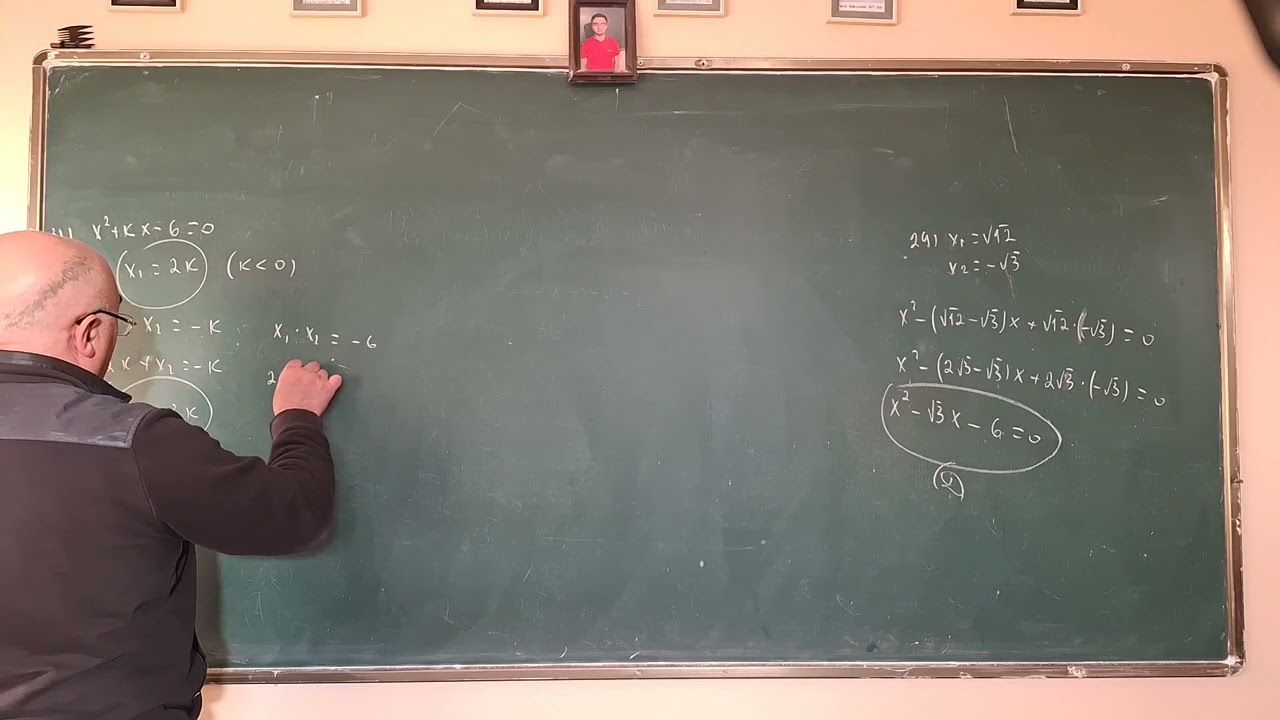 x²+Kx-6=0
x₁ = 2K (K<0)
x₂ = -K
2K + x₂ = -K
K
x₁ · x₂ = -6
2
29) x₁ = √12
x₂ = -√3
x² - (√12 - √3)x + √12 · (-√3) = 0
x² - (2√3 - √3)x + 2√3 · (-√3) = 0
x² - √3x - 6 = 0